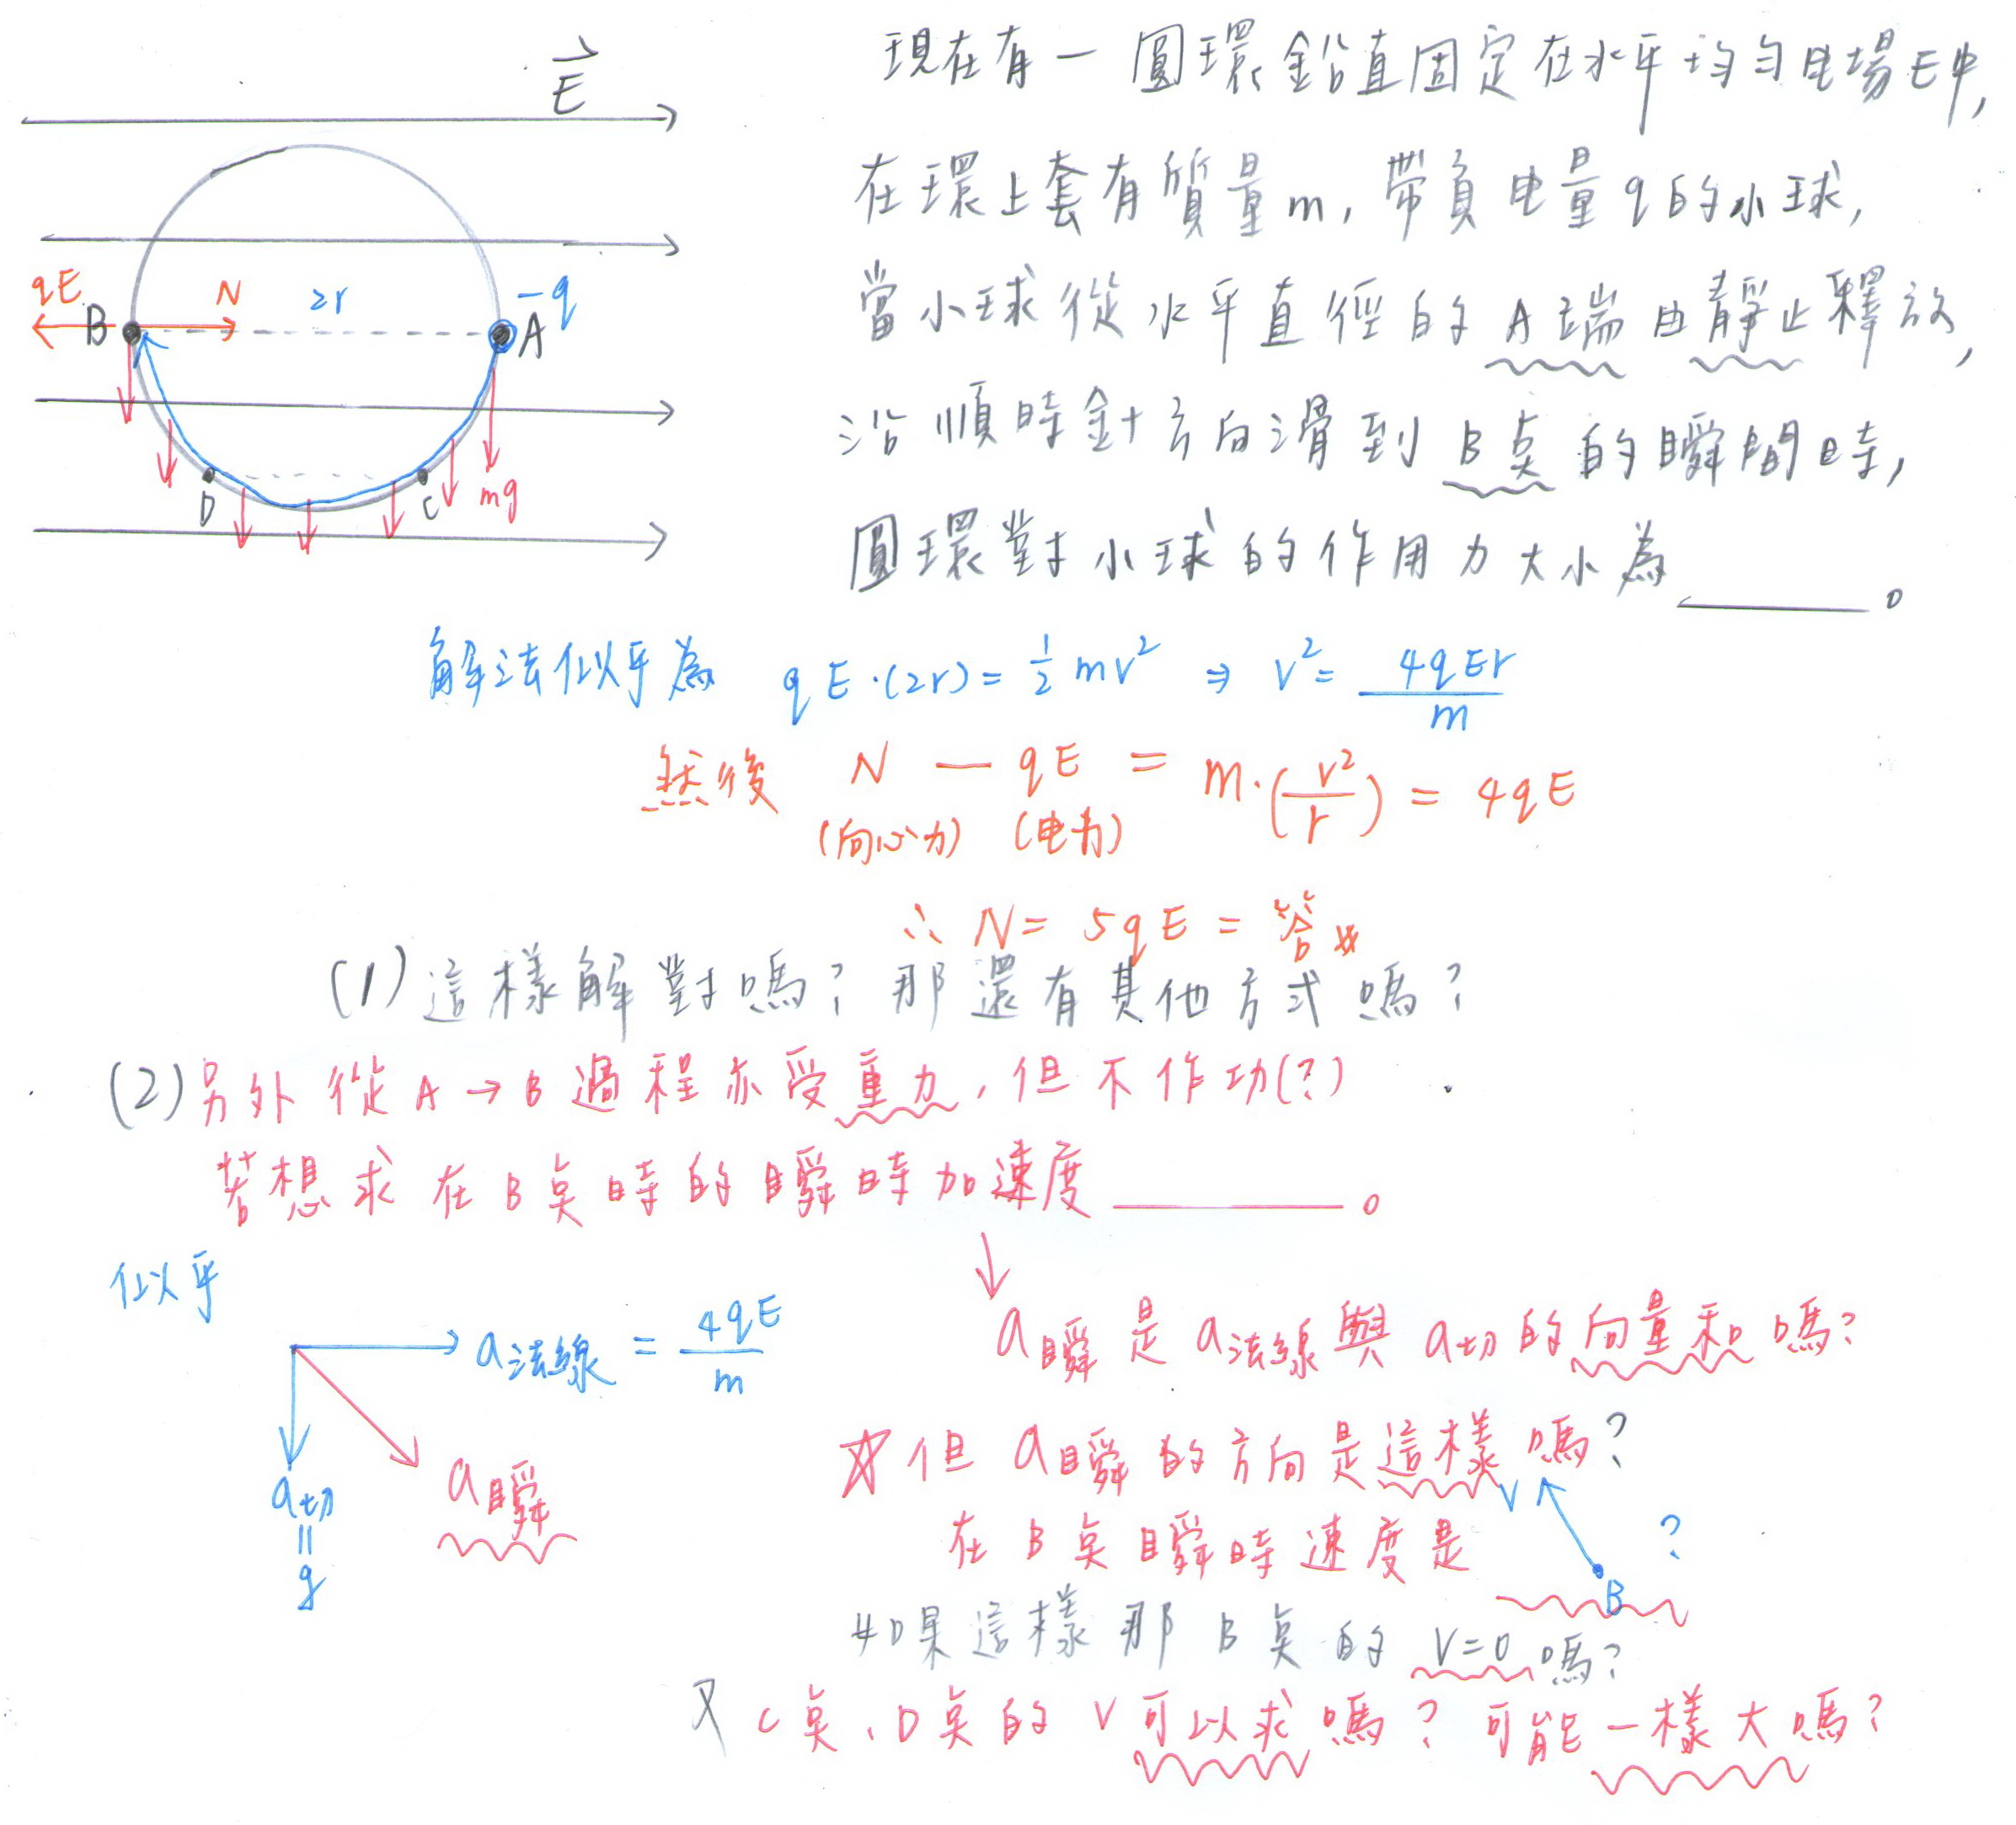 E
現在有一圓環鉛直固定在水平均勻电場E中,
在環上套有質量m, 帶負电量q的小球,
當小球從水平直徑的A端由靜止釋放,
沿順時針方向滑到B点的瞬間時,
圓環對小球的作用力大小為______。
qE
B
N
2r
-q
A
D
C
mg
解法似乎為 qE·(2r)=½mv² ⇒ v²= 4qEr/m
然後 N - qE = m·(v²/r) = 4qE
(向心力) (电力)
∴ N = 5qE = 答#
(1)這樣解對嗎? 那還有其他方式嗎?
(2)另外從A→B過程亦受重力, 但不作功(?)
若想求在B点時的瞬時加速度______。
似乎
a法線 = 4qE/m
a切
=
g
a瞬
a瞬是a法線與a切的向量和嗎?
☆但a瞬的方向是這樣嗎?
在B点瞬時速度是 V B ?
如果這樣那B点的V=0嗎?
又C点、D点的V可以求嗎? 可能一樣大嗎?